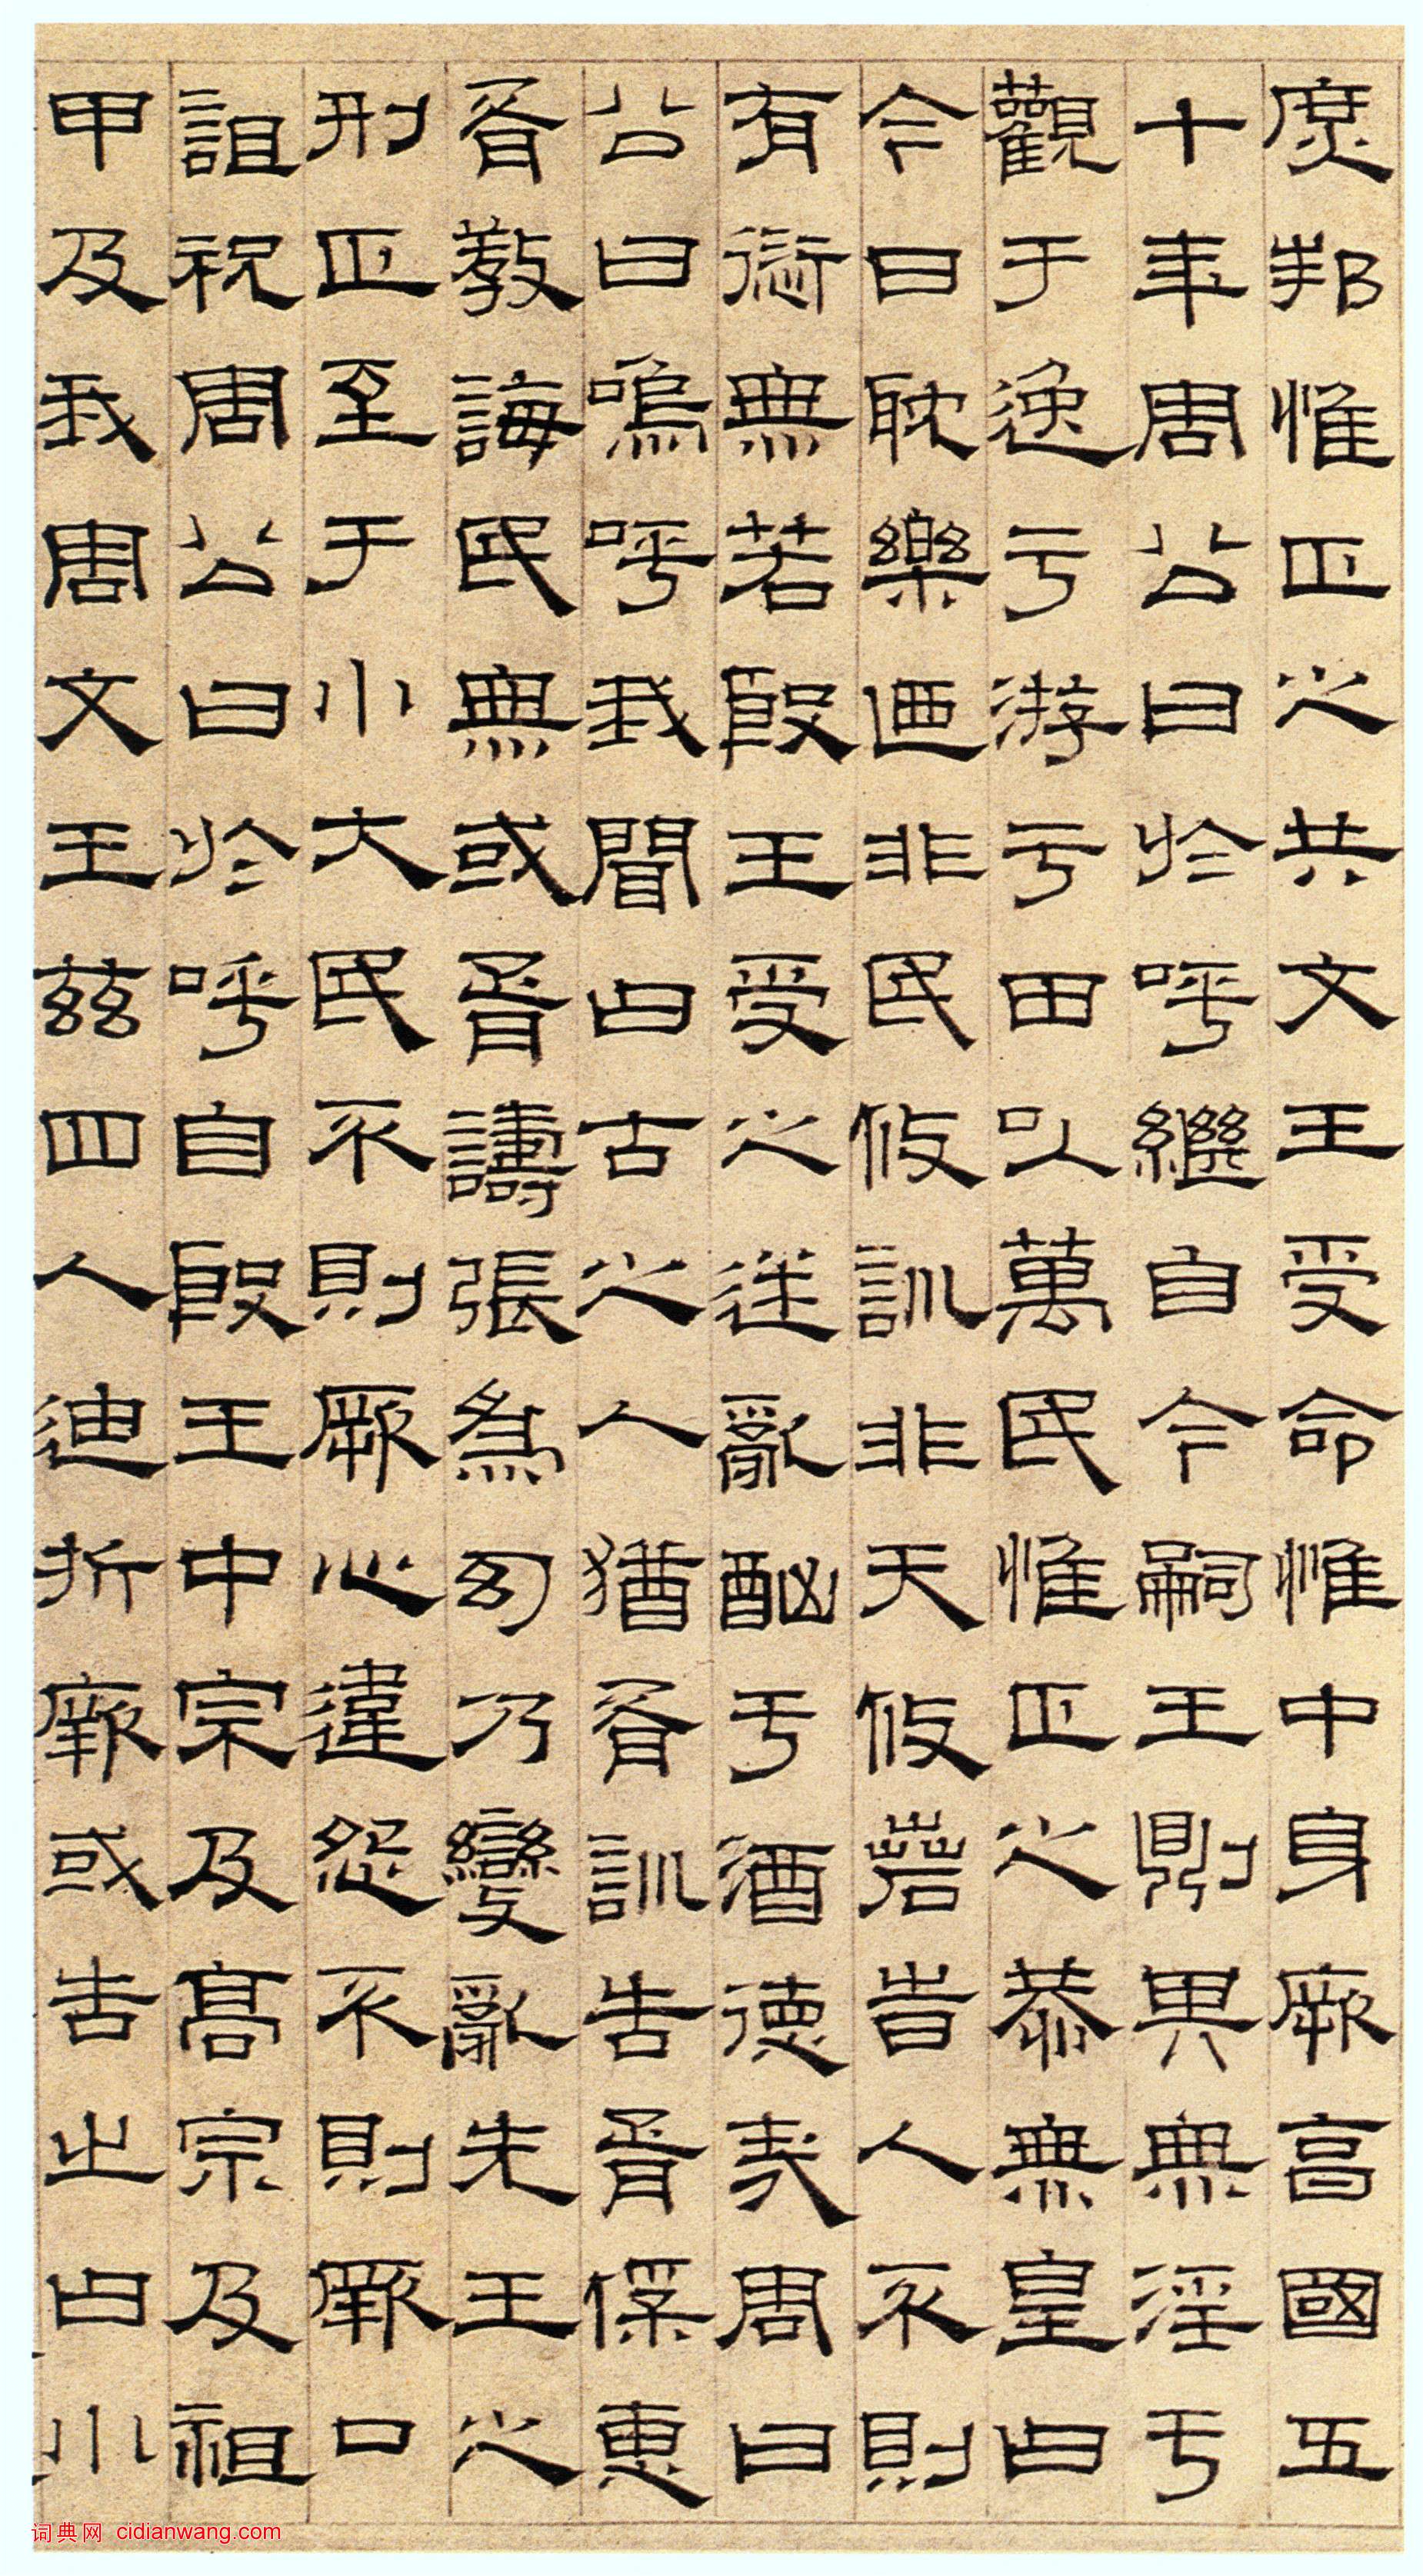 庶邦惟正之共文王受命惟中身厥享國五
十年周公曰於呼繼自今嗣王則其無淫于
觀于逸于游于田以萬民惟正之恭無皇曰
今日耽樂迺非民攸訓非天攸若時人不則
有愆無若殷王受之迷亂酗于酒德哉周曰
公曰嗚呼我聞曰古之人猶胥訓告胥保惠
胥教誨民無或胥譸張為幻乃變亂先王之
刑正至于小大民不則厥心違怨不則厥口
詛祝周公曰於呼自殷王中宗及高宗及祖
甲及我周文王茲四人迪折厥或告之曰小
词典网 cidianwang.com